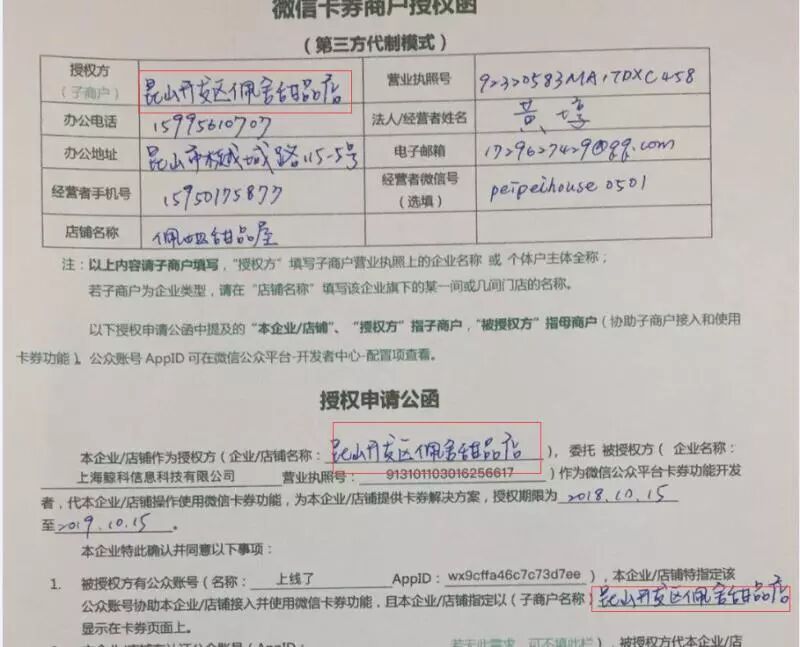 微信卡券商户授权函
（第三方代制模式）
授权方（子商户） 昆山开发区佩舍甜品店 营业执照号 92320583MA1TDXC458
办公电话 15995610707 法人/经营者姓名 黄
办公地址 昆山市 城路115-5号 电子邮箱 1729627429@qq.com
经营者手机号 15950175877 经营者微信号（选填） peipeihouse0501
店铺名称 佩姐甜品屋
注：以上内容请子商户填写，“授权方”填写子商户营业执照上的企业名称 或 个体户主体全称；
若子商户为企业类型，请在“店铺名称”填写该企业旗下的某一间或几间门店的名称。
以下授权申请公函中提及的“本企业/店铺”、“授权方”指子商户，“被授权方”指母商户（协助子商户接入和使用
卡券功能）。公众账号 AppID 可在微信公众平台-开发者中心-配置项查看。
授权申请公函
本企业/店铺作为授权方（企业/店铺名称：昆山开发区佩舍甜品店），委托 被授权方（ 企业名称：
上海鲸科信息科技有限公司 营业执照号： 913101103016256617 ）作为微信公众平台卡券功能开发
者，代本企业/店铺操作使用微信卡券功能，为本企业/店铺提供卡券解决方案，授权期限为 2018.10.15
至2019.10.15。
本企业特此确认并同意以下事项：
1. 被授权方有公众账号（名称： 上线了 AppID：wx9cffa46c7c73d7ee ），本企业/店铺特指定该
公众账号协助本企业/店铺接入并使用微信卡券功能，且本企业/店铺指定以（子商户名称）昆山开发区佩舍甜品店
显示在卡券页面上。
若无此需求，可不填此栏），被授权方代本企业/店